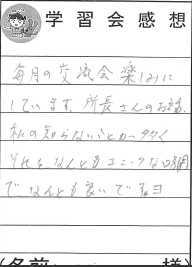 学習会感想
毎月の交流会楽しみに
しています。所長さんのお話、
私の知らないことか
それをなんともユニークな
で、なんとも
(名前 様)